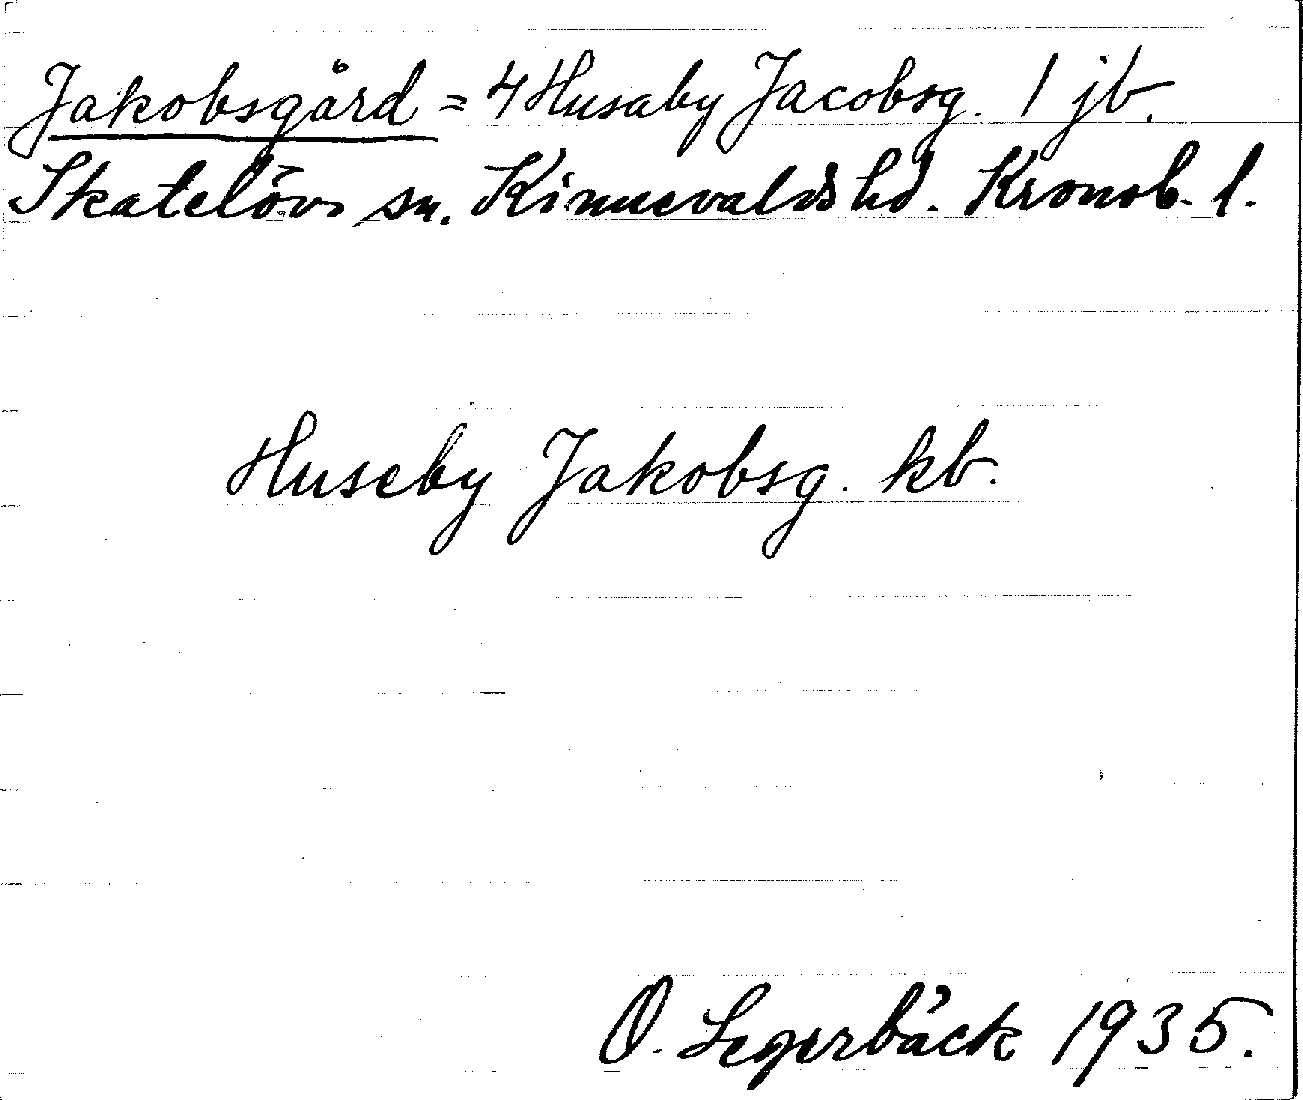 Jakobsgård = 4 Husaby Jacobsg. 1 jb.
Skatelövs sn. Kinnevalds hd. Kronob. l.
Huseby Jakobsg. kb.
O. Segerbäck 1935.